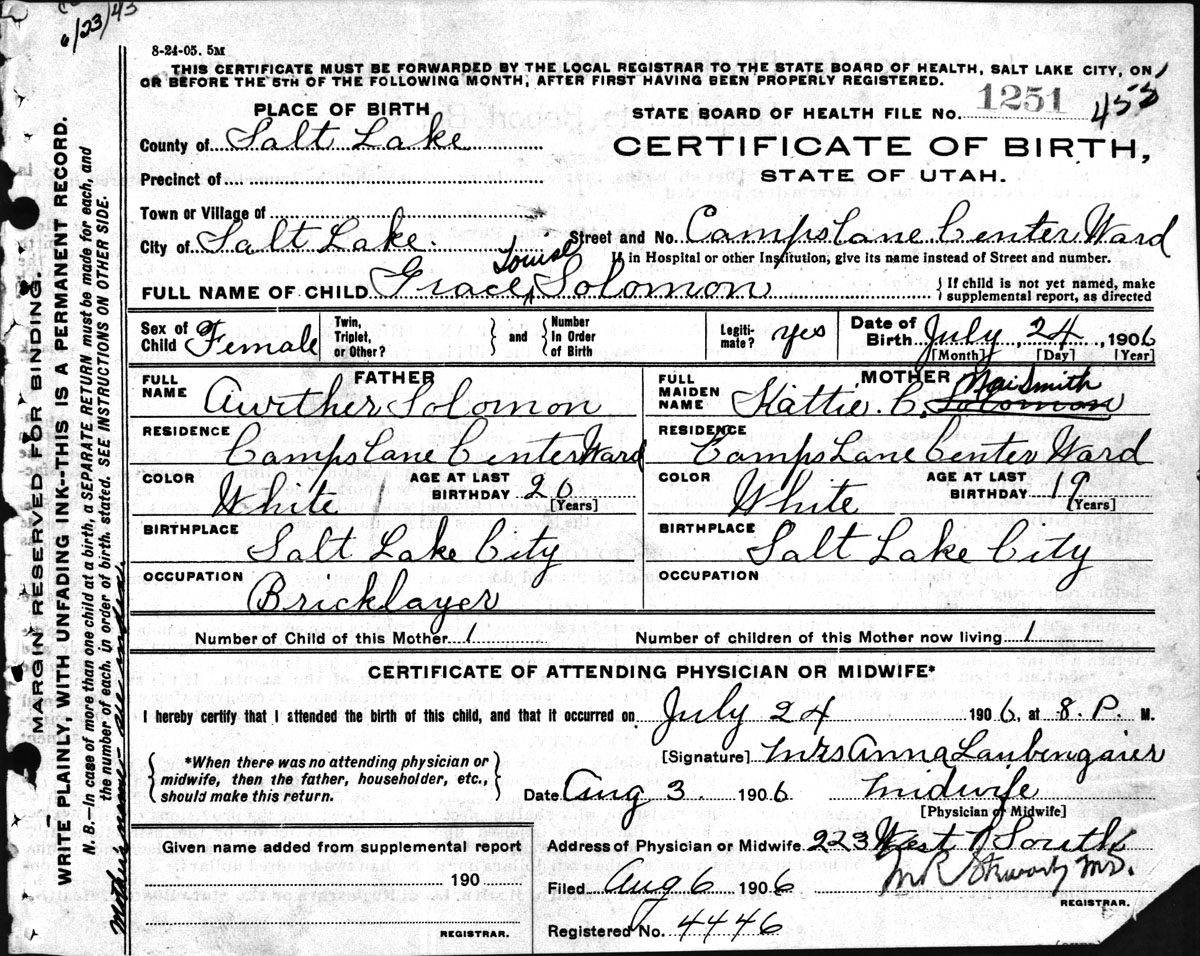 6/23/43
8-24-05. 5M
THIS CERTIFICATE MUST BE FORWARDED BY THE LOCAL REGISTRAR TO THE STATE BOARD OF HEALTH, SALT LAKE CITY, ON
OR BEFORE THE 5TH OF THE FOLLOWING MONTH, AFTER FIRST HAVING BEEN PROPERLY REGISTERED.
PLACE OF BIRTH
STATE BOARD OF HEALTH FILE NO. 1251 453
County of Salt Lake
CERTIFICATE OF BIRTH,
Precinct of
STATE OF UTAH.
Town or Village of
City of Salt Lake. Street and No. Camps Lane Center Ward
If in Hospital or other Institution, give its name instead of Street and number.
Louise
FULL NAME OF CHILD Grace Solomon If child is not yet named, make
supplemental report, as directed
Sex of Child Female Twin, Triplet, or Other? and Number In Order of Birth Legiti- mate? yes Date of Birth July 24, 1906
[Month] [Day] [Year]
FATHER MOTHER
FULL NAME Awrther Solomon FULL MAIDEN NAME Kattie. C. Solomon Naismith
RESIDENCE RESIDENCE
Camps Lane Center Ward Camps Lane Center Ward
COLOR White AGE AT LAST BIRTHDAY 20 [Years] COLOR White AGE AT LAST BIRTHDAY 19 [Years]
BIRTHPLACE Salt Lake City BIRTHPLACE Salt Lake City
OCCUPATION Bricklayer OCCUPATION
Number of Child of this Mother 1 Number of children of this Mother now living 1
CERTIFICATE OF ATTENDING PHYSICIAN OR MIDWIFE*
I hereby certify that I attended the birth of this child, and that it occurred on July 24 1906, at 8. P. M.
*When there was no attending physician or
midwife, then the father, householder, etc.,
should make this return.
[Signature] Mrs Anna Laubengaier
Date Aug 3. 1906 Midwife
[Physician or Midwife]
Given name added from supplemental report
190
REGISTRAR.
Address of Physician or Midwife 223 West 7 South
Filed Aug 6 1906 M.D.
REGISTRAR.
Registered No. 4446
MARGIN RESERVED FOR BINDING.
WRITE PLAINLY, WITH UNFADING INK--THIS IS A PERMANENT RECORD.
N. B.—In case of more than one child at a birth, a SEPARATE RETURN must be made for each, and
the number of each, in order of birth, stated. SEE INSTRUCTIONS ON OTHER SIDE.
Mother's name